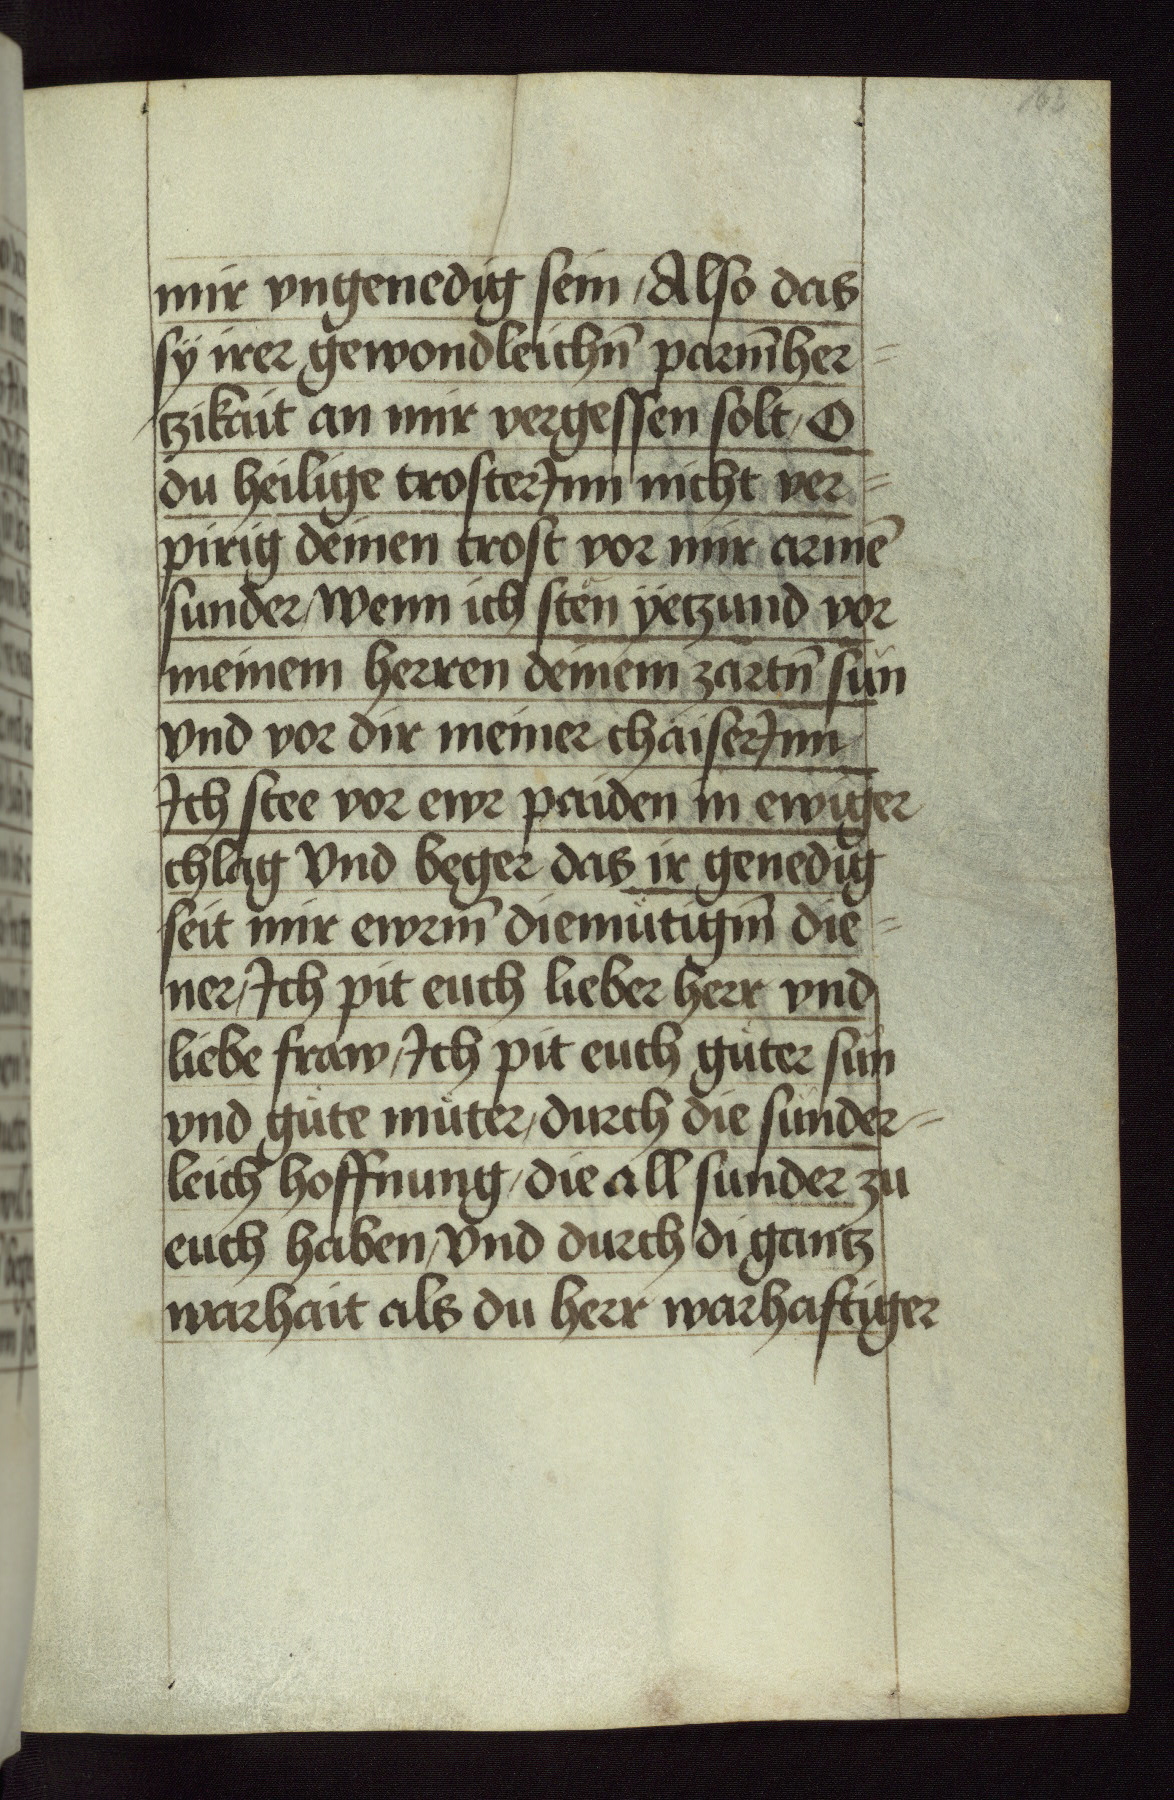 162
mir vngenedig sein / Also das
sy irer gewondleichn̄ parm̄her=
tzikait an mir vergessen solt / O
du heilige trosterJnn nicht ver=
pirig deinen trost vor mir armē
sunder / Wenn ich stēn ÿetzund vor
meinem herren deinem zartn̄ sŭn
vnd vor dir meiner chaiserJnn
Jch stee vor ewr paiden in ewiger
chlag Vnd beger das ir genedig
seit mir ewrm̄ diemŭtigm̄ die=
ner / Jch pit euch lieber herr vnd
liebe fraw / Jch pit euch gŭter sŭn
vnd gŭte mŭter / durch die sunder=
leich hoffnung / die all sunder zu
euch haben / Vnd durch di gantz
warhait als du herr warhaftiger